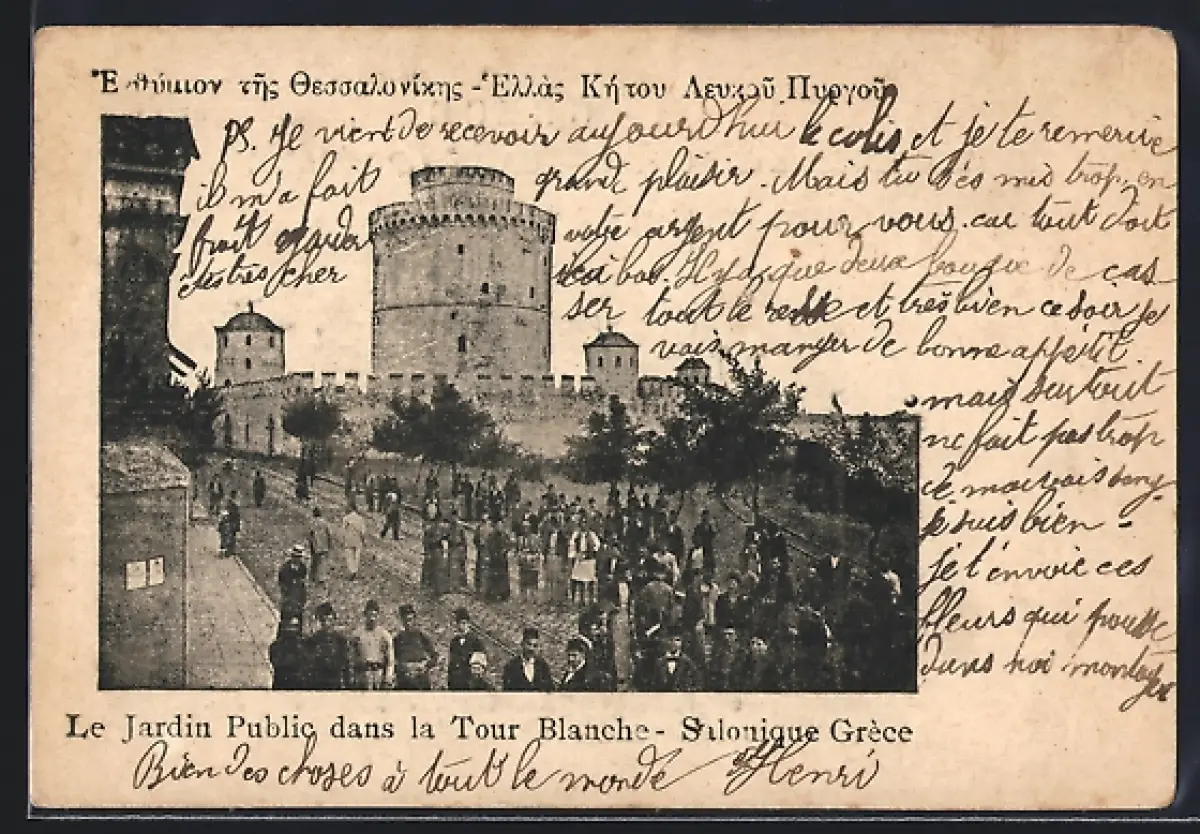 Ἐνθύμιον τῆς Θεσσαλονίκης - Ἑλλὰς Κή του Λευκοῦ Πυργοῦ
PS. Je vient de recevoir aujourd'hui le colis et je te remercie
il m'a fait grand plaisir. Mais tu t'es mis trop en
frait garder votre argent pour vous car tout doit
êtres très cher ici bas. Il y a que deux bougie de cas
ser tout le reste et très bien ce soir je
vais manger de bonne appétit.
mais surtout
ne fait pas trop
de mauvais sang
je suis bien -
je t'envoie ces
fleurs qui pousse
dans nos montagne
Le Jardin Public dans la Tour Blanche - Salonique Grèce
Bien des choses à tout le monde Henri